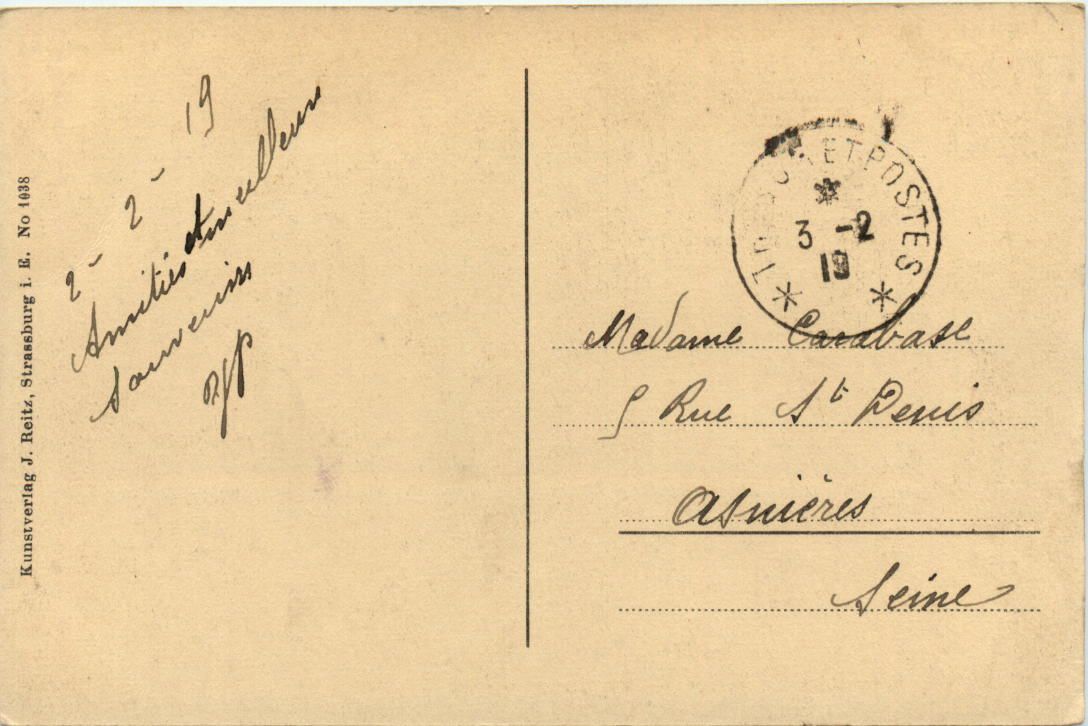 Kunstverlag J. Reitz, Strassburg i. E. No 1038
2 - 2 - 19
Amitiés et meilleurs
souvenirs
ET POSTES
3 -2
19
Madame Carabase
5 Rue St Denis
Asnières
Seine